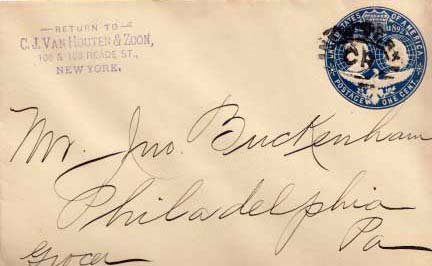 RETURN TO
C. J. VAN HOUTEN & ZOON,
106 & 108 READE ST.,
NEW YORK.
UNITED STATES OF AMERICA
1892
POSTAGE ONE CENT.
Mr. Jno. Buckenham
Philadelphia
Pa
Grocer